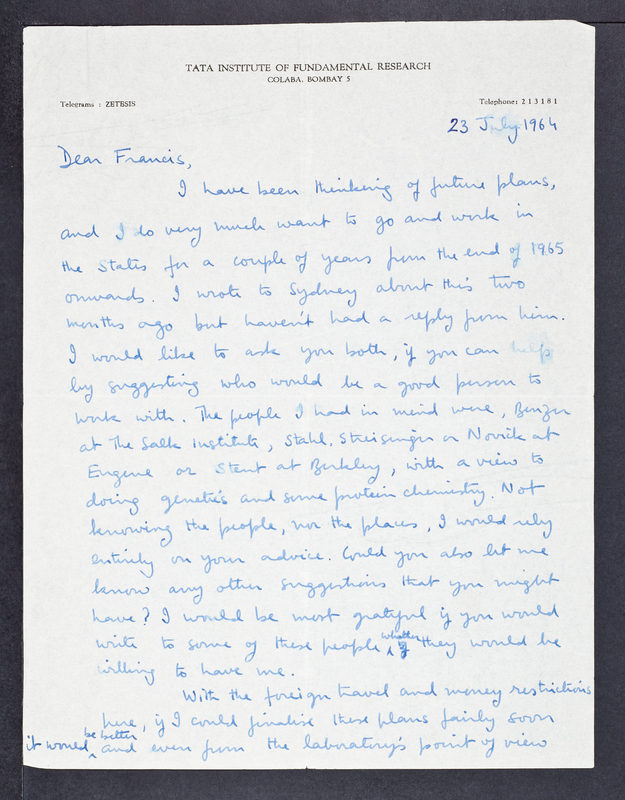 TATA INSTITUTE OF FUNDAMENTAL RESEARCH
COLABA, BOMBAY 5
Telegrams : ZETESIS
Telephone: 213181
23 July 1964
Dear Francis,
I have been thinking of future plans,
and I do very much want to go and work in
the States for a couple of years from the end of 1965
onwards. I wrote to Sydney about this two
months ago but haven't had a reply from him.
I would like to ask you both, if you can help
by suggesting who would be a good person to
work with. The people I had in mind were, Benzer
at The Salk Institute, Stahl, Streisinger or Novick at
Eugene or Stent at Berkley, with a view to
doing genetics and some protein chemistry. Not
knowing the people, nor the places, I would rely
entirely on your advice. Could you also let me
know any other suggestions that you might
have? I would be most grateful if you would
write to some of these people whether they would be
willing to have me.
With the foreign travel and money restrictions
here, if I could finalise these plans fairly soon
it would be better and even from the laboratory's point of view